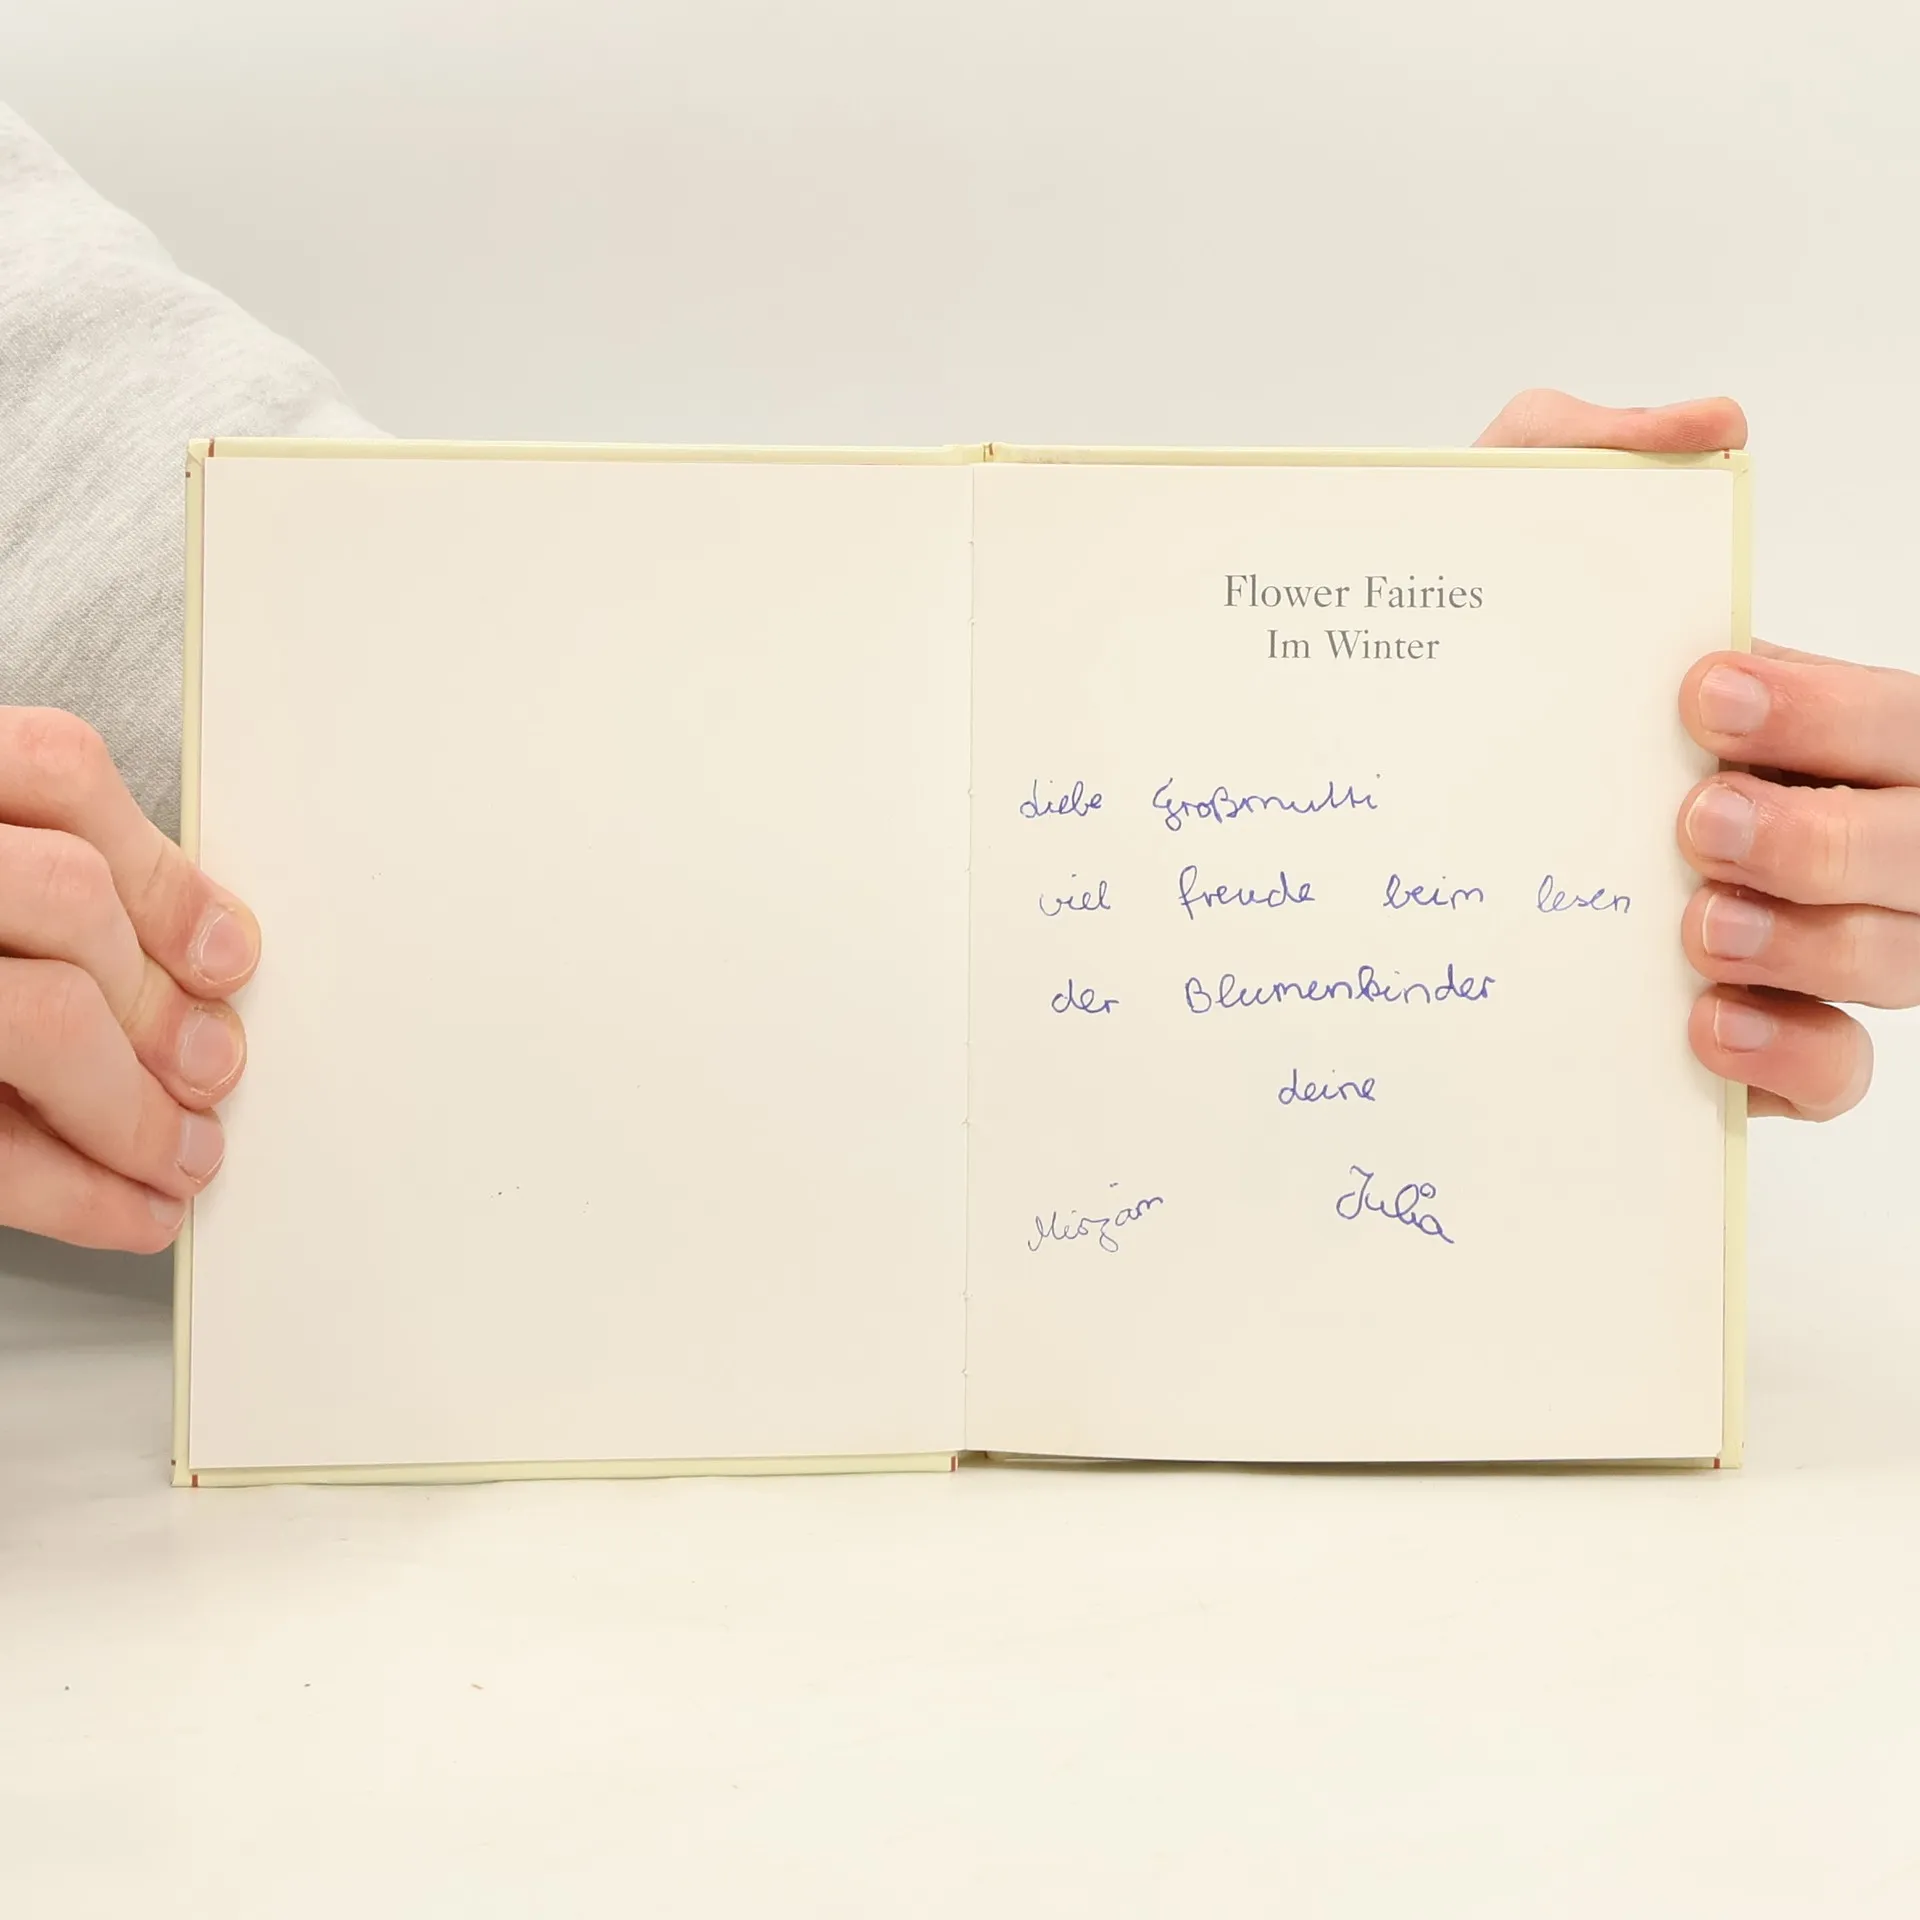 Flower Fairies
Im Winter
liebe Großmutti
viel freude beim lesen
der Blumenkinder
deine
Mirjam Julia